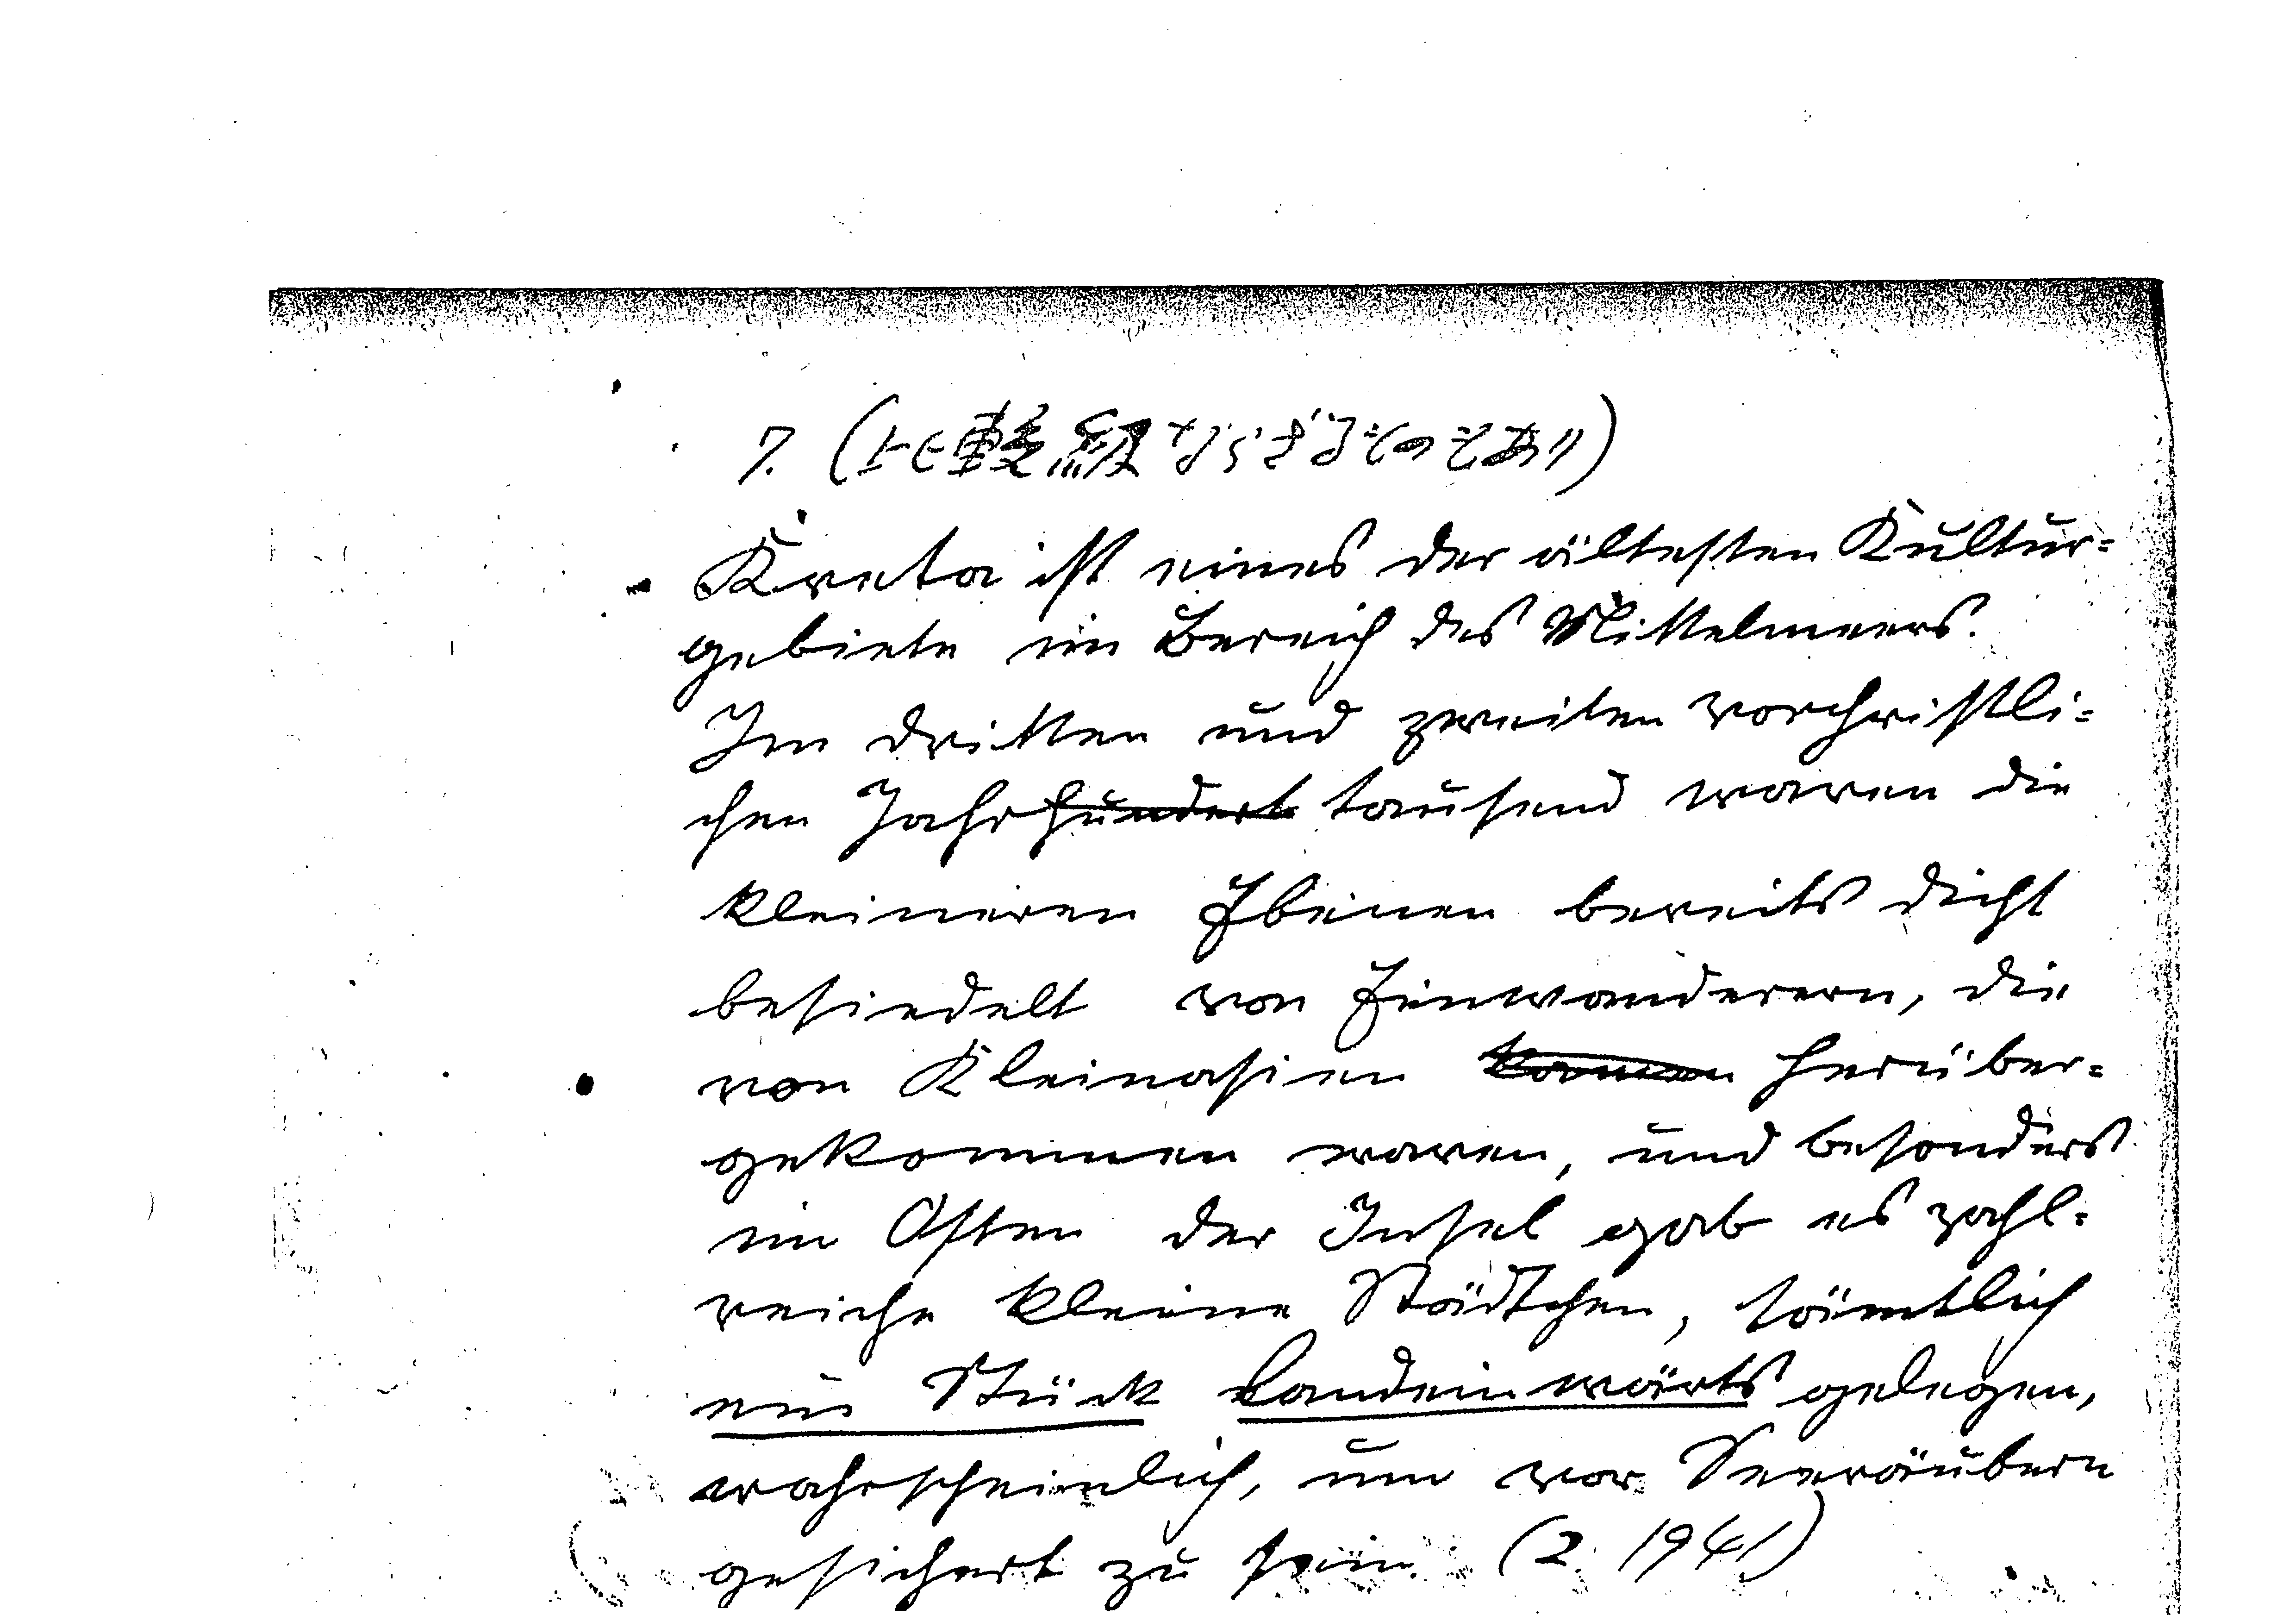 7. (比較級ならざるものもあり)
Kreta ist eines der ältesten Kultur=
gebiete im Bereich des Mittelmeers.
Im dritten und zweiten vorchristli=
chen Jahrhundert tausend waren die
kleineren Ebenen bereits dicht
besiedelt von Einwanderern, die
von Kleinasien kamen herüber=
gekommen waren, und besonders
im Osten der Insel gab es zahl=
reiche kleine Städtchen, sämtlich
ein Stück landeinwärts gelegen,
wahrscheinlich, um vor Seeräubern
gesichert zu sein. (2. 1941)